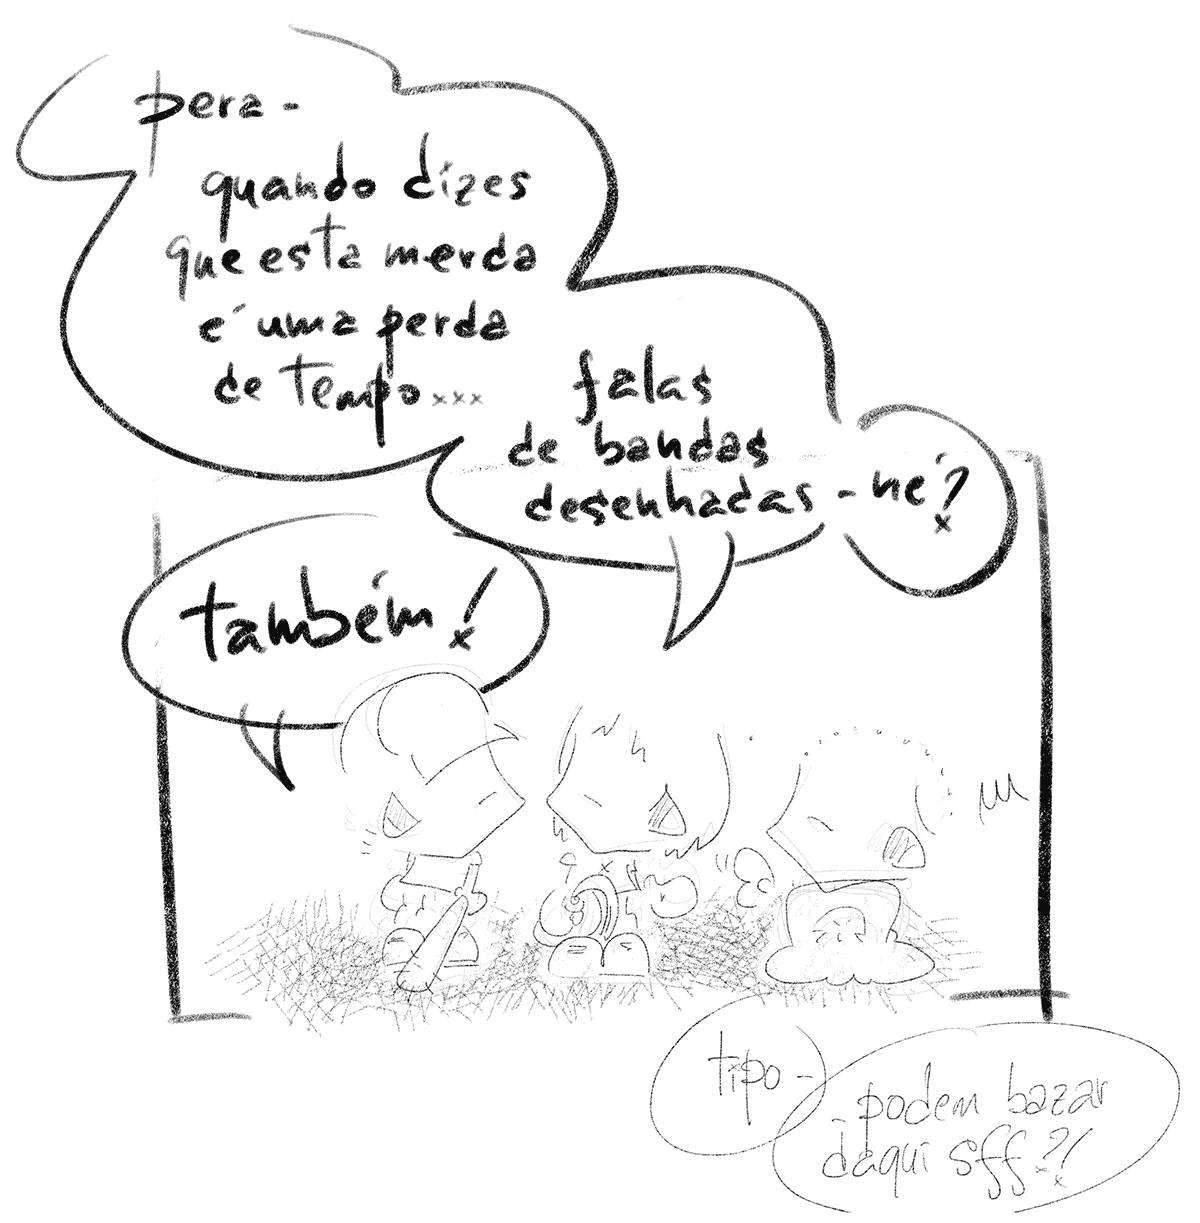 pera -
quando dizes
que esta merda
é uma perda
de tempo...
falas
de bandas
desenhadas - né?
também!
tipo -
podem bazar
daqui sff?!